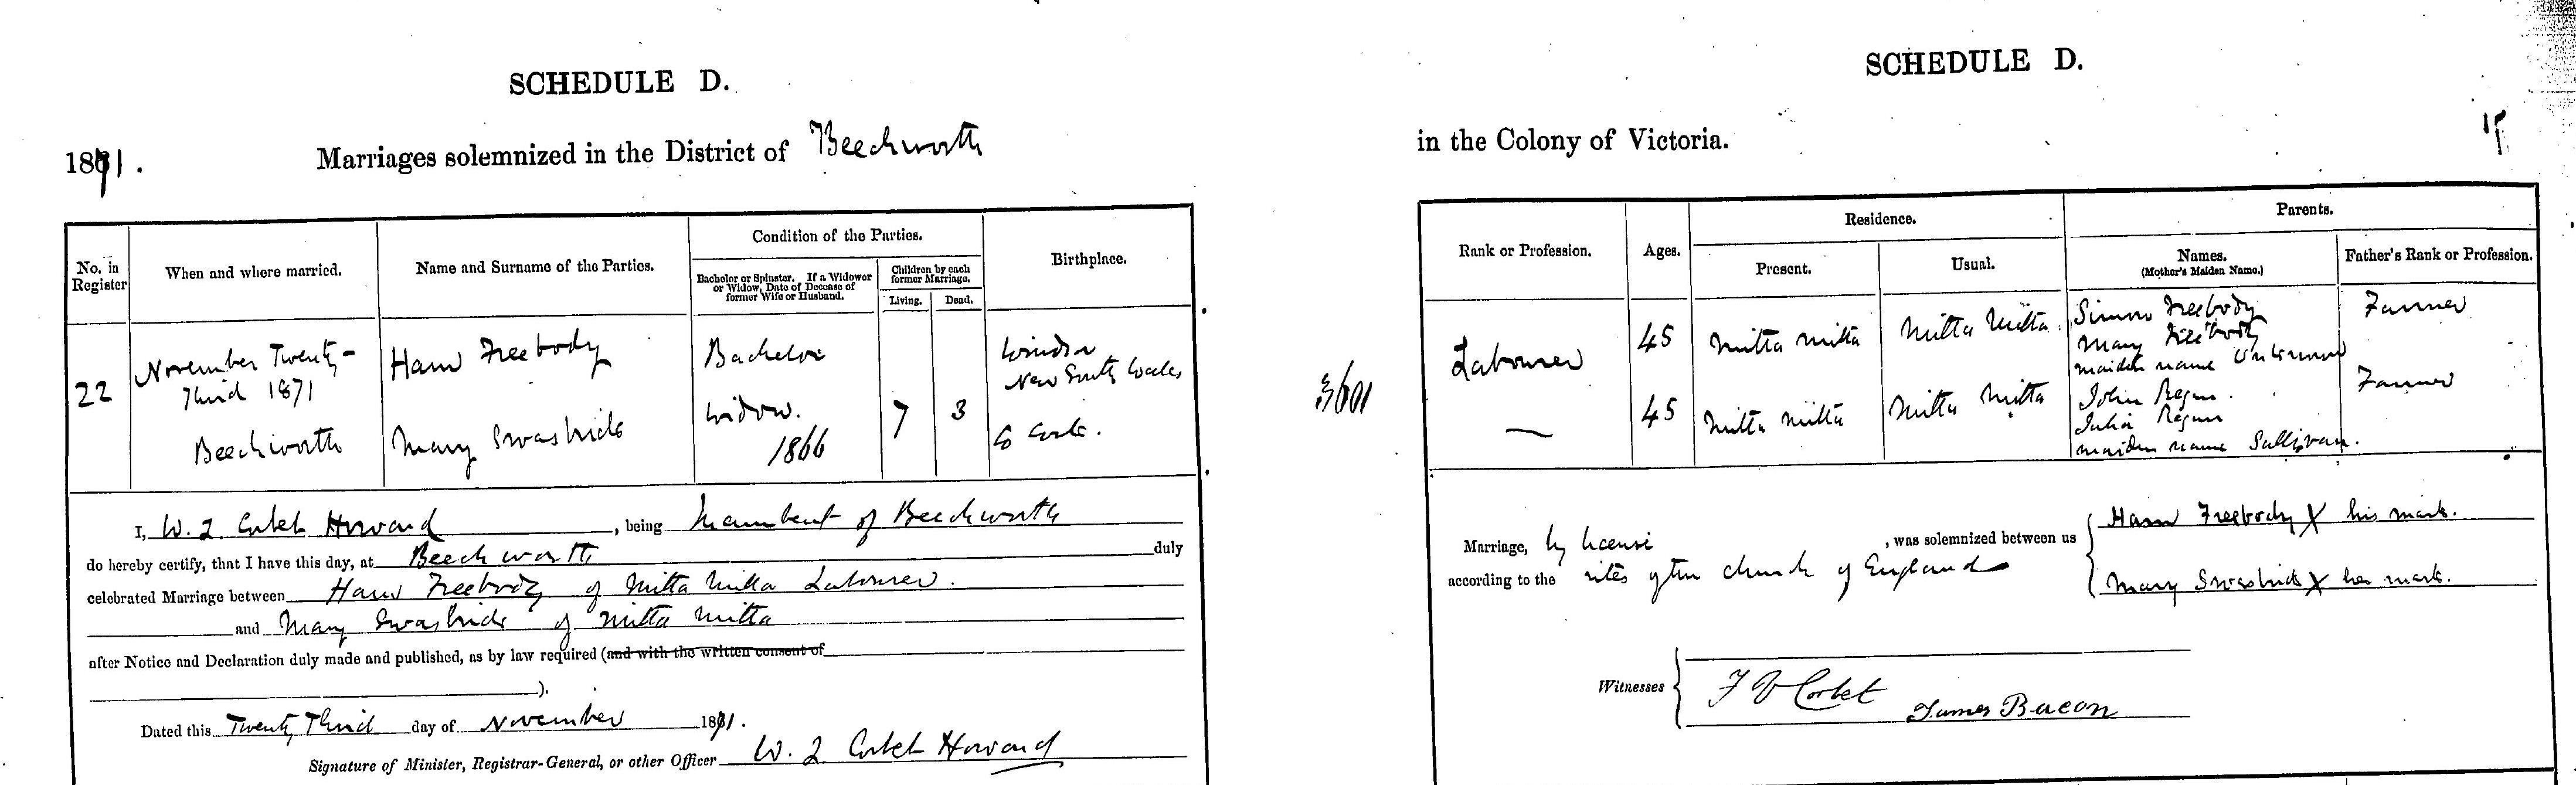 SCHEDULE D.
1871. Marriages solemnized in the District of Beechworth
No. in Register
When and where married.
Name and Surname of the Parties.
Condition of the Parties.
Bachelor or Spinster. If a Widower or Widow, Date of Decease of former Wife or Husband.
Children by each former Marriage.
Living.
Dead.
Birthplace.
22
November Twenty-
Third 1871
Beechworth
Ham Freebody
Mary Swasbride
Bachelor
Widow.
1866
7
3
Windsor
New South Wales
Co Cork.
I, W. Corbet Howard, being Incumbent of Beechworth
do hereby certify, that I have this day, at Beechworth duly
celebrated Marriage between Ham Freebody of Mitta Mitta Labourer.
and Mary Swasbride of Mitta Mitta
after Notice and Declaration duly made and published, as by law required (and with the written consent of
).
Dated this Twenty Third day of November 1871.
Signature of Minister, Registrar-General, or other Officer W. Corbet Howard
SCHEDULE D.
in the Colony of Victoria.
3601
Rank or Profession.
Ages.
Residence.
Present.
Usual.
Parents.
Names.
(Mother's Maiden Name.)
Father's Rank or Profession.
Labourer
45
Mitta Mitta
Mitta Mitta
Simon Freebody
Mary Freebody
maiden name Unknown
Farmer
—
45
Mitta Mitta
Mitta Mitta
John Regan.
Julia Regan
maiden name Sullivan.
Farmer
Marriage, by license, was solemnized between us
according to the rites of the church of England
Ham Freebody X his mark.
Mary Swasbride X her mark.
Witnesses
Corbet
James Bacon